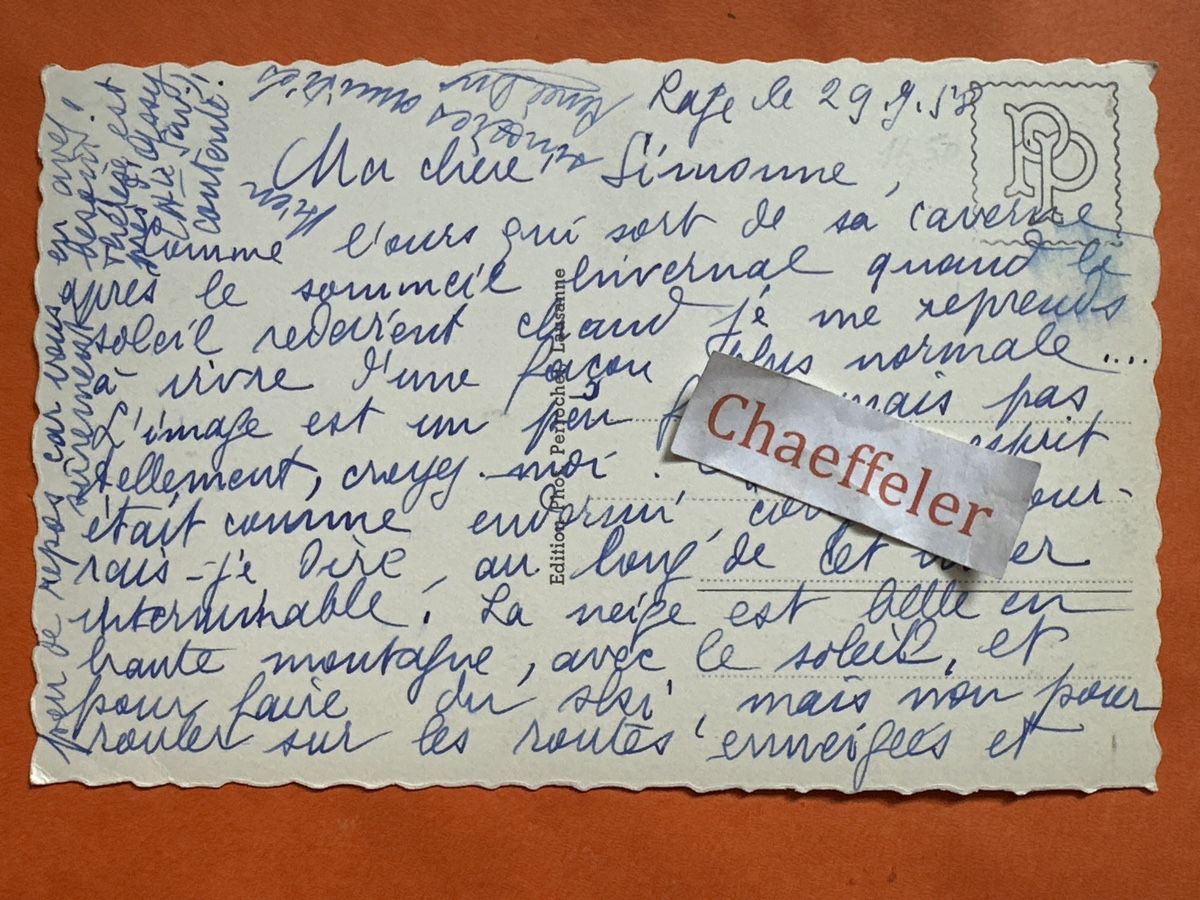 le 29. 9. 58
Ma chère Simonne,
Comme l'ours qui sort de sa caverne
après le sommeil hivernal quand le
soleil redevient chaud je me reprends
à vivre d'une façon plus normale ....
L'image est un peu mais pas
tellement, croyez-moi. esprit
était comme endormi, pour-
rais-je dire, au long de cet hiver
interminable. La neige est belle en
haute montagne, avec le soleil, et
pour faire du ski, mais non pour
rouler sur les routes enneigées et
peu de repos car vous en avez
sûrement besoin!
est
près
contente!
bien
sincères amitiés
Edition Photo Perrochet Lausanne
PP
Chaeffeler